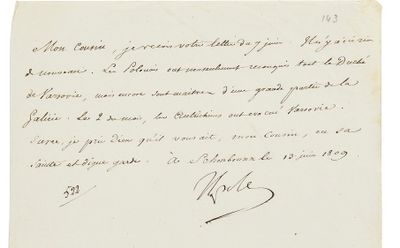 143
Mon Cousin, je reçois votre lettre du 9 juin. Il n'y a ici rien
de nouveau. Les Polonais ont non seulement reconquis tout le Duché
de Varsovie, mais encore sont maîtres d'une grande partie de la
Galicie. Les 2 de mois, les Autrichiens ont évacué Varsovie.
Sur ce, je prie Dieu qu'il vous ait, mon Cousin, en sa
sainte et digne garde. à Schonbrunn le 13 juin 1809